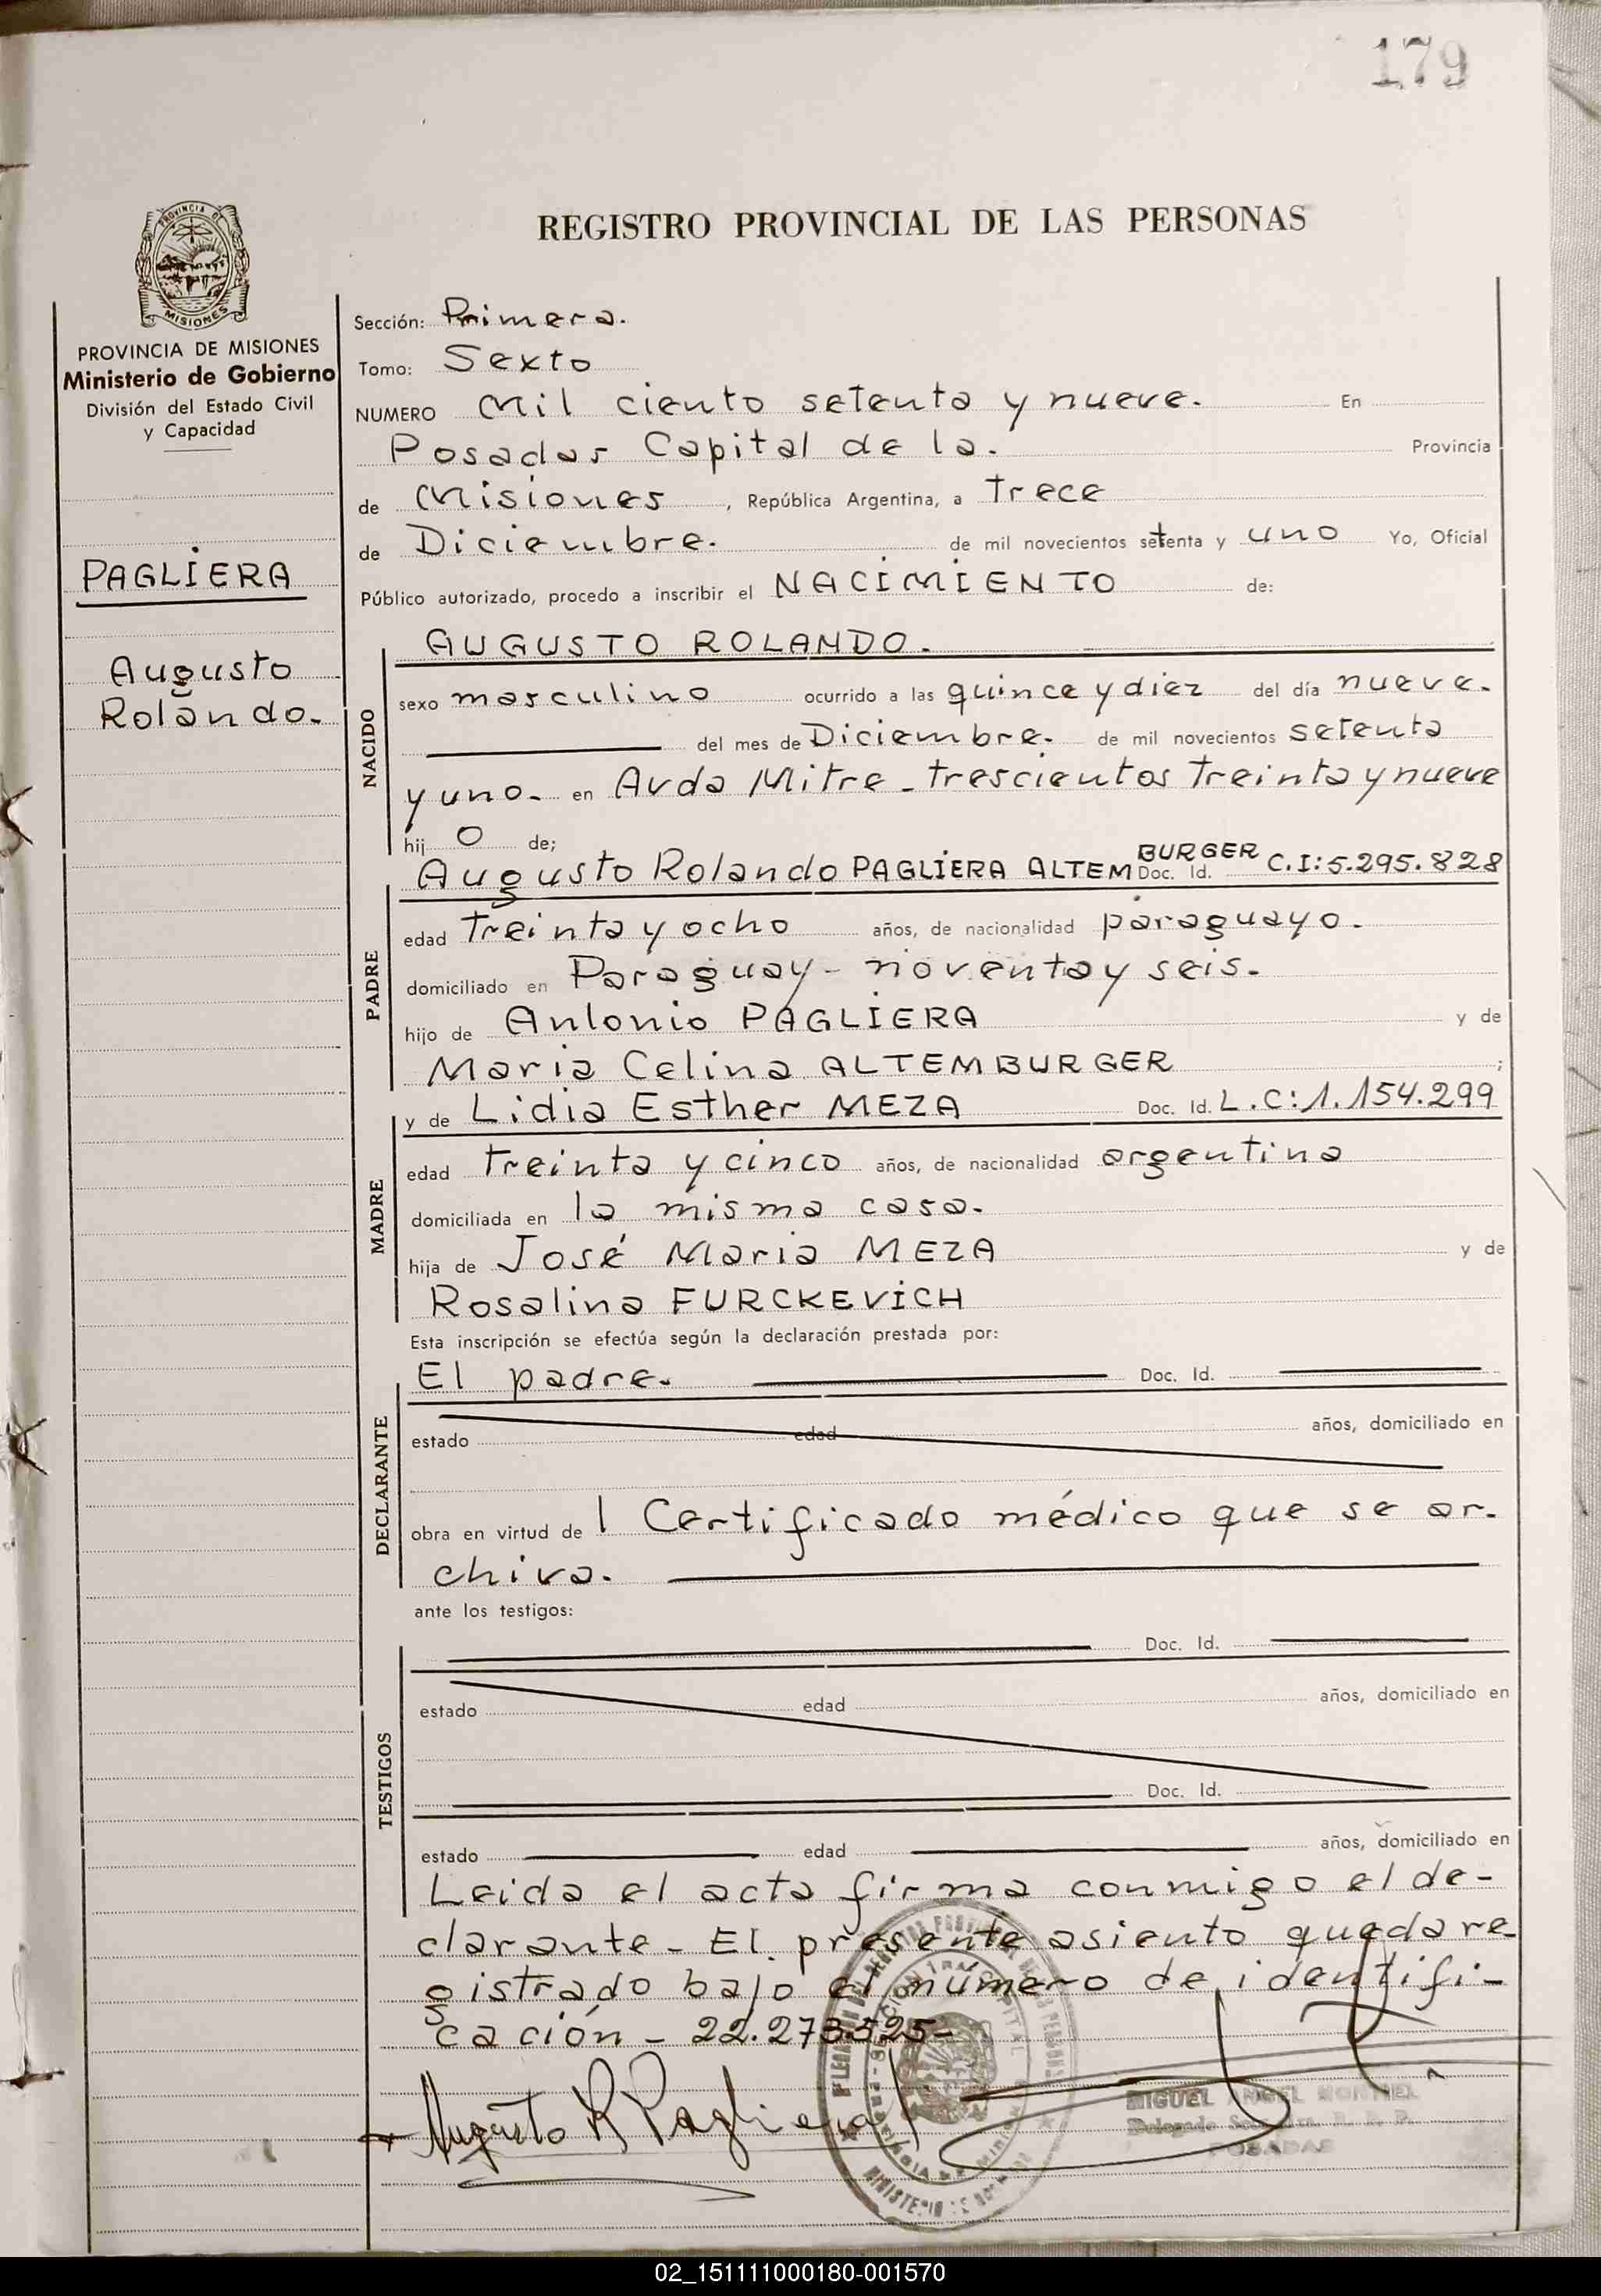 179
REGISTRO PROVINCIAL DE LAS PERSONAS
PROVINCIA DE
MISIONES
PROVINCIA DE MISIONES
Ministerio de Gobierno
División del Estado Civil
y Capacidad
PAGLIERA
Augusto
Rolando.
Sección: Primera.
Tomo: Sexto
NUMERO Mil ciento setenta y nueve. En
Posadas Capital de la. Provincia
de Misiones, República Argentina, a Trece
de Diciembre. de mil novecientos setenta y uno Yo, Oficial
Público autorizado, procedo a inscribir el NACIMIENTO de:
NACIDO
AUGUSTO ROLANDO.
sexo masculino ocurrido a las quince y diez del día nueve.
del mes de Diciembre. de mil novecientos setenta
y uno. en Avda Mitre - trescientos treinta y nueve
hij o de;
PADRE
Augusto Rolando PAGLIERA ALTEMBURGER Doc. Id. C.I: 5.295.828
edad Treinta y ocho años, de nacionalidad paraguayo.
domiciliado en Paraguay - noventa y seis.
hijo de Antonio PAGLIERA y de
Maria Celina ALTEMBURGER ;
MADRE
y de Lidia Esther MEZA Doc. Id. L.C: 1.154.299
edad Treinta y cinco años, de nacionalidad argentina
domiciliada en la misma casa.
hija de José Maria MEZA y de
Rosalina FURCKEVICH
Esta inscripción se efectúa según la declaración prestada por:
DECLARANTE
El padre. Doc. Id.
estado edad años, domiciliado en
obra en virtud de l Certificado médico que se ar-
chiva.
ante los testigos:
TESTIGOS
Doc. Id.
estado edad años, domiciliado en
Doc. Id.
estado edad años, domiciliado en
Leida el acta firma conmigo el de-
clarante - El presente asiento queda re-
gistrado bajo el número de identifi-
cación - 22.273.525-
Augusto R Pagliera
MIGUEL ANGEL
POSADAS
02_151111000180-001570